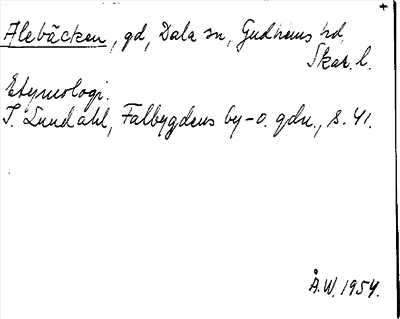 Alebäcken, gd, Dala sn, Gudhems hd,
Skar. l.
Etymologi.
I. Lundahl, Falbygdens by- o. gdn., s. 41.
Å.W. 1954.